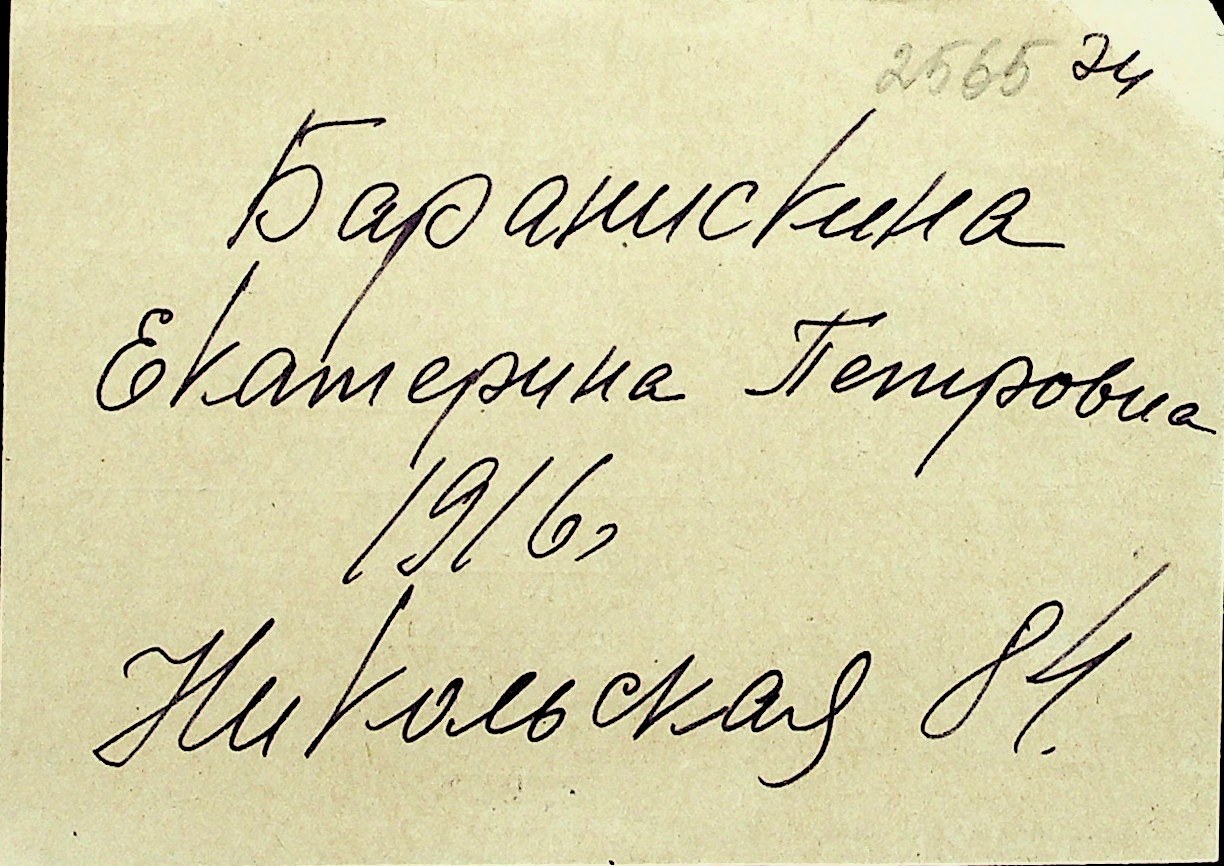 2565
Баранискина
Екатерина Петровна
1916г
Никольская 84.